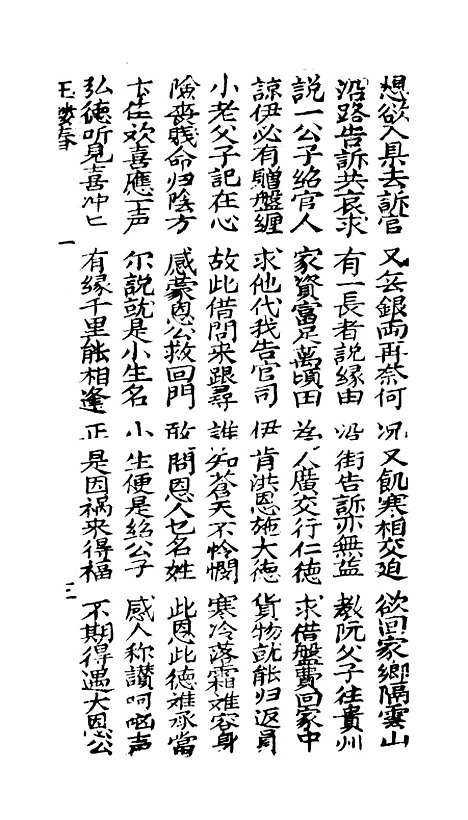 想欲入県去訴官 又無銀両再奈何 况又飢寒相交迫 欲回家鄉隔雲山
沿路告訴共哀求 有一長者説緣由 沿街告訴亦無益 教阮父子往貴州
説一公子绐官人 家資富足萬頃田 為人廣交行仁德 求借盤費回家中
諒伊必有贈盤纏 求他代我告官司 伊肯洪恩施大德 貨物就能归返員
小老父子記在心 故此借問来跟尋 誰知蒼天不怜憫 寒冷落霜难容身
險喪残命归陰方 感蒙恩公救回門 敢問恩人乜名姓 此恩此德难承當
士佳欢喜應一声 尔説就是小生名 小生便是绐公子 感人称讃呵咾声
弘德听見喜冲匕 有縁千里能相逢 正是因祸来得福 不期得遇大恩公
玉娄春 一 三